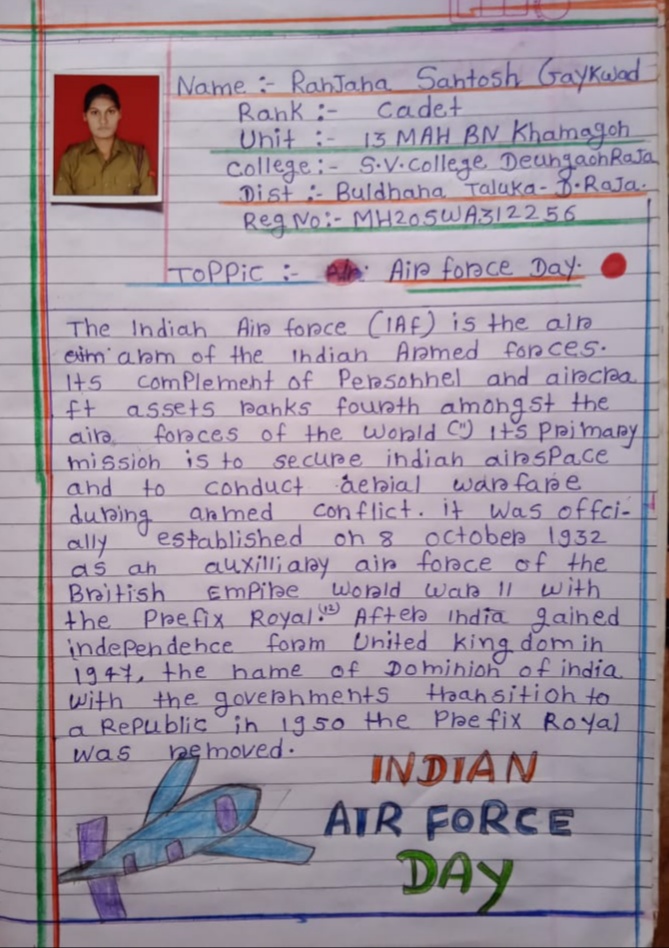 Name :- Ranjana Santosh Gaykwad
Rank :- Cadet
Unit :- 13 MAH BN Khamagon
College :- S.V.College DeungaonRaja
Dist :- Buldhana Taluka- D.Raja.
Reg No:- MH20SWA312256
TOPPiC :- Air force Day.
The Indian Air force (IAF) is the air
arm of the Indian Armed forces.
Its complement of Personnel and aircra
ft assets ranks fourth amongst the
air forces of the World (") Its Primary
mission is to secure indian airspace
and to conduct aerial warfare
during armed conflict. it was offci-
ally established on 8 october 1932
as an auxilliary air force of the
British Empire World War II with
the Prefix Royal.(12) After India gained
independence form United king dom in
1947, the name of Dominion of india
with the governments transition to
a Republic in 1950 the Prefix Royal
was removed.
INDIAN
AIR FORCE
DAY